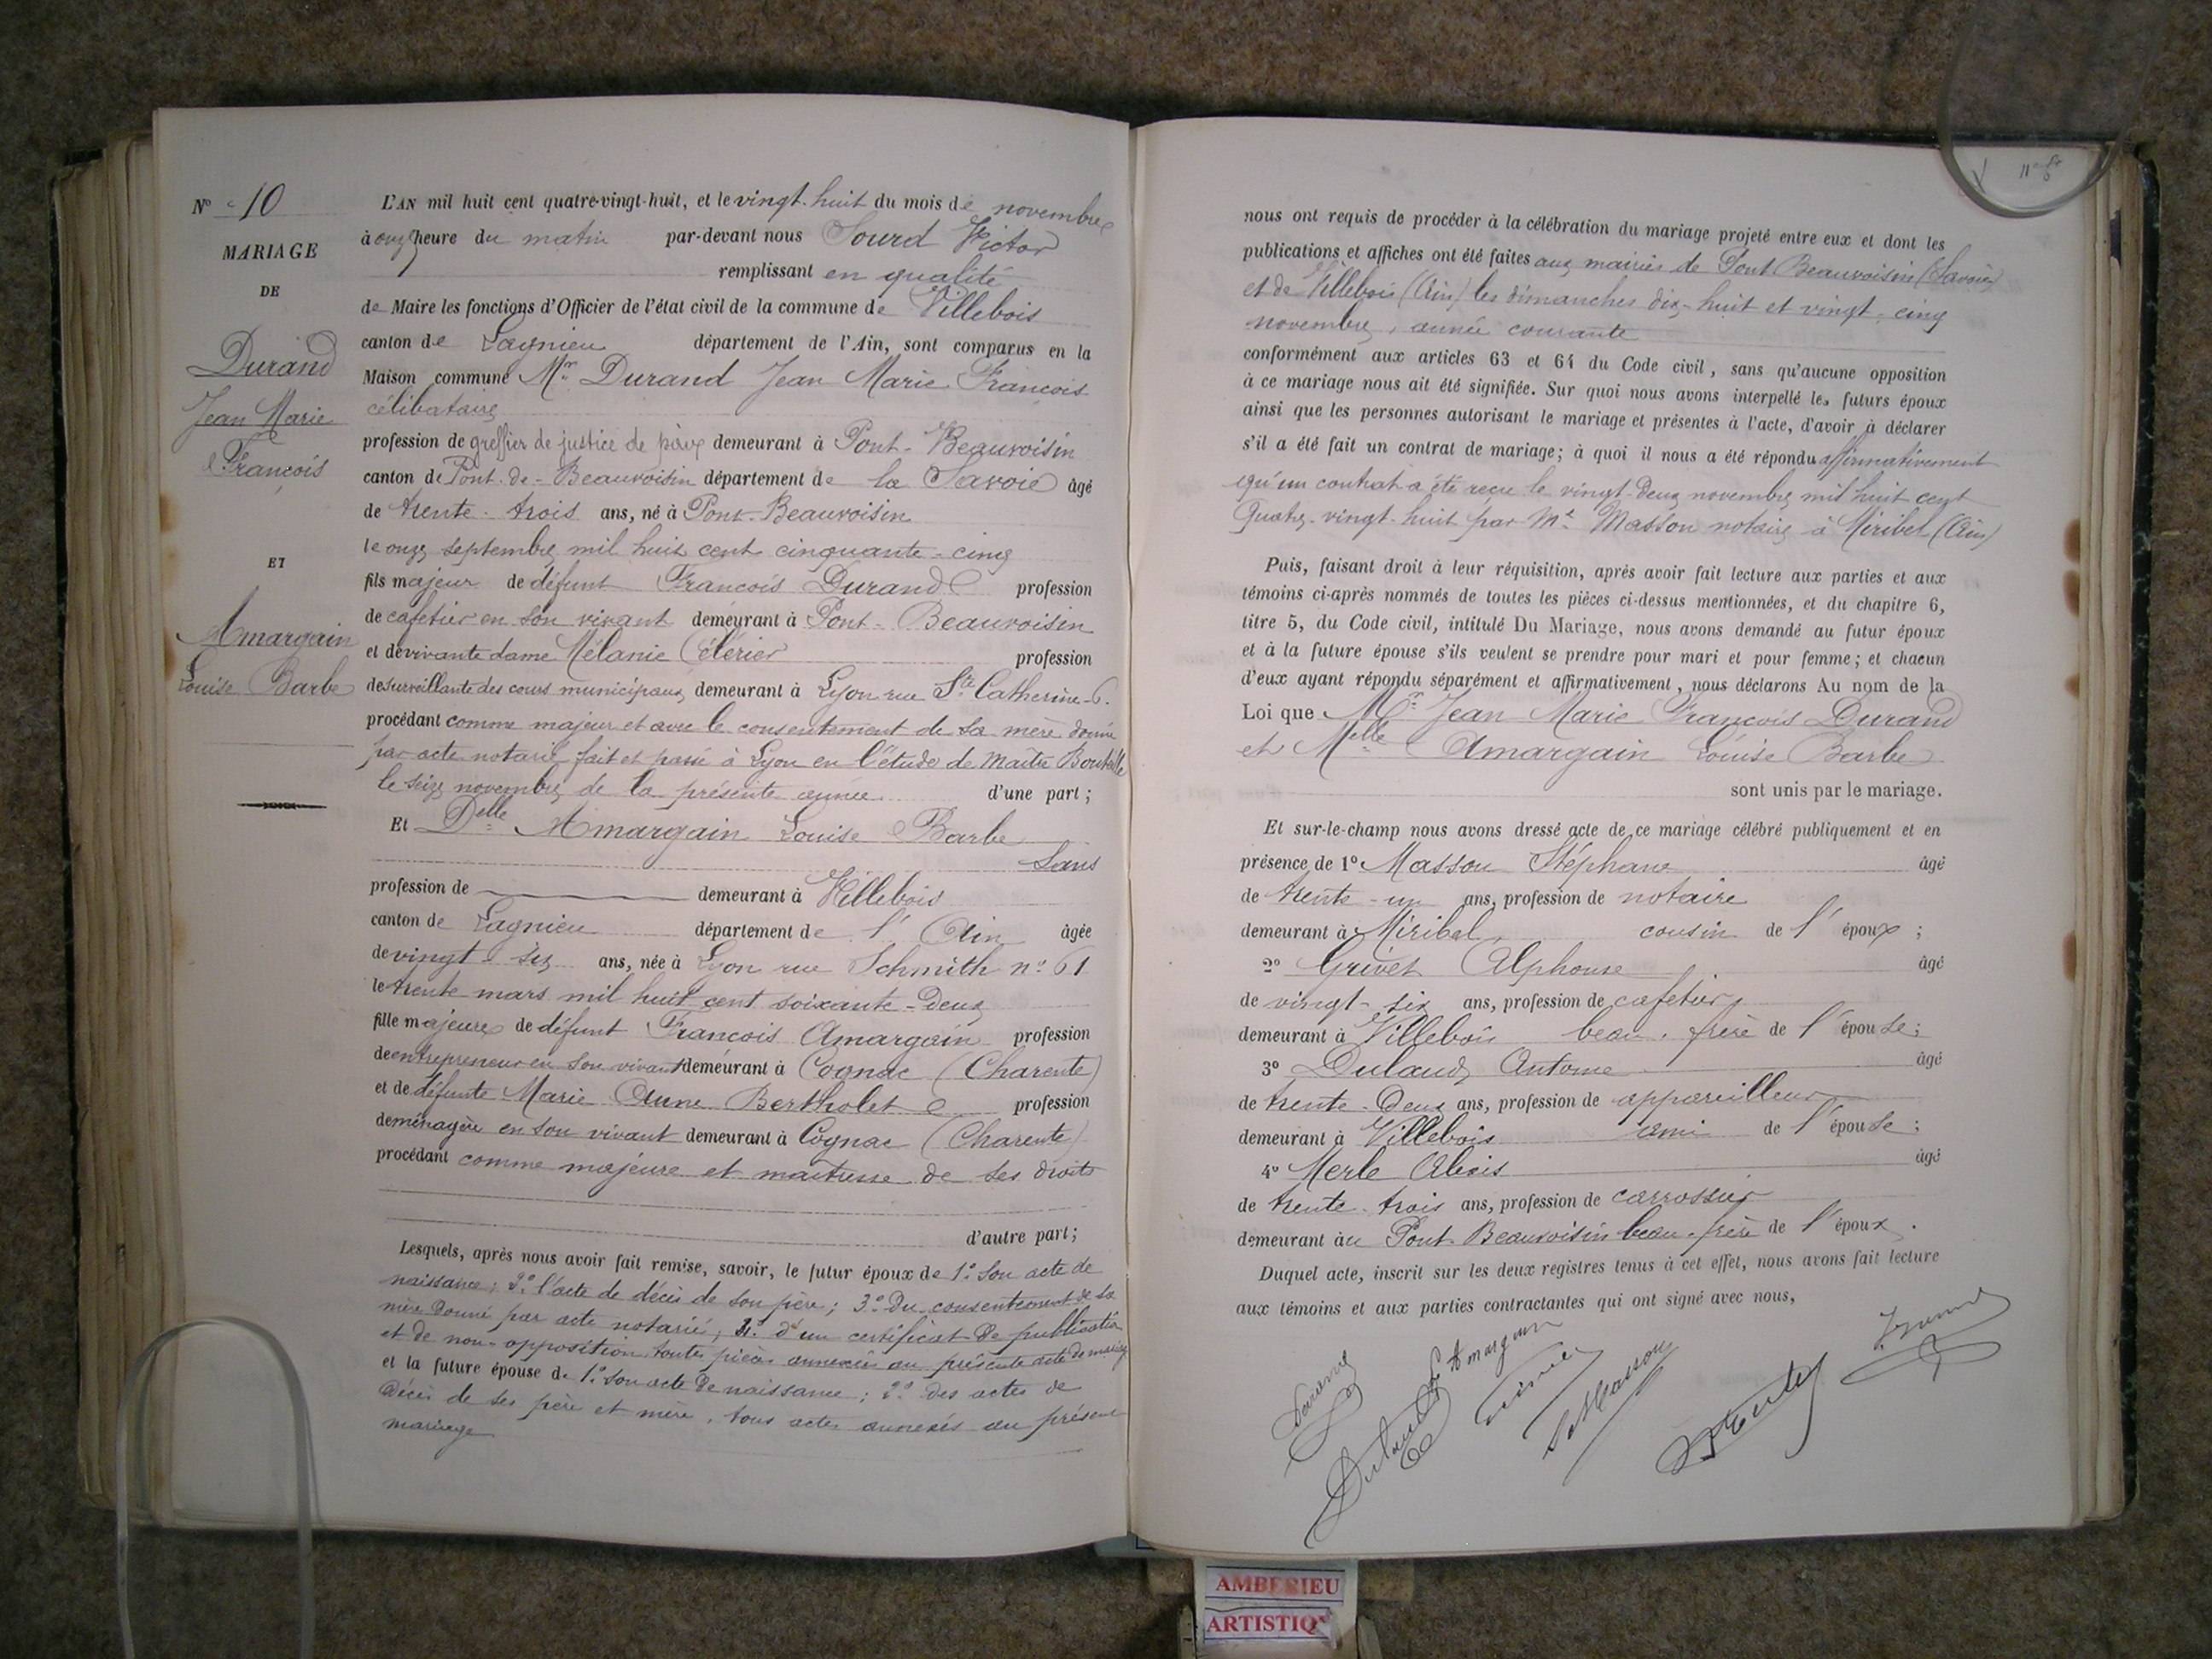 N° 10
MARIAGE
DE
Durand
Jean Marie
François
ET
Amargain
Louise Barbe
L'AN mil huit cent quatre-vingt-huit, et le vingt-huit du mois de novembre
à onze heure du matin par-devant nous Sourd Victor
remplissant en qualité
de Maire les fonctions d'Officier de l'état civil de la commune de Villebois
canton de Lagnieu département de l'Ain, sont comparus en la
Maison commune Mr Durand Jean Marie François
célibataire
profession de greffier de justice de paix demeurant à Pont-Beauvoisin
canton de Pont-de-Beauvoisin département de la Savoie âgé
de trente-trois ans, né à Pont-Beauvoisin
le onze septembre mil huit cent cinquante-cinq
fils majeur de défunt François Durand profession
de cafetier en son vivant demeurant à Pont-Beauvoisin
et de vivante dame Mélanie Célérier profession
de surveillante des cours municipaux demeurant à Lyon rue Ste Catherine-6.
procédant comme majeur et avec le consentement de sa mère donné
par acte notarié fait et passé à Lyon en l'étude de Maître Bouteille
le seize novembre de la présente année d'une part ;
Et Delle Amargain Louise Barbe
Sans
profession de demeurant à Villebois
canton de Lagnieu département de l'Ain âgée
de vingt-six ans, née à Lyon rue Schmith n° 61
le trente mars mil huit cent soixante-deux
fille majeure de défunt François Amargain profession
de entrepreneur en son vivant demeurant à Cognac (Charente)
et de défunte Marie Anne Bertholet profession
de ménagère en son vivant demeurant à Cognac (Charente)
procédant comme majeure et maitresse de ses droits
d'autre part ;
Lesquels, après nous avoir fait remise, savoir, le futur époux de 1° Son acte de
naissance ; 2° l'acte de décès de son père ; 3° Du consentement de sa
mère donné par acte notarié, 4° d'un certificat de publication
et de non-opposition, toutes pièces annexées au présent acte de mariage
et la future épouse de 1° son acte de naissance ; 2° des actes de
décès de ses père et mère, tous actes annexés au présent
mariage
nous ont requis de procéder à la célébration du mariage projeté entre eux et dont les
publications et affiches ont été faites aux mairies de Pont Beauvoisin (Savoie)
et de Villebois (Ain) les dimanches dix-huit et vingt-cinq
novembre, année courante
conformément aux articles 63 et 64 du Code civil, sans qu'aucune opposition
à ce mariage nous ait été signifiée. Sur quoi nous avons interpellé les futurs époux
ainsi que les personnes autorisant le mariage et présentes à l'acte, d'avoir à déclarer
s'il a été fait un contrat de mariage ; à quoi il nous a été répondu affirmativement
qu'un contrat a été reçu le vingt-deux novembre mil huit cent
quatre-vingt-huit par Me Masson notaire à Miribel (Ain)
Puis, faisant droit à leur réquisition, après avoir fait lecture aux parties et aux
témoins ci-après nommés de toutes les pièces ci-dessus mentionnées, et du chapitre 6,
titre 5, du Code civil, intitulé Du Mariage, nous avons demandé au futur époux
et à la future épouse s'ils veulent se prendre pour mari et pour femme ; et chacun
d'eux ayant répondu séparément et affirmativement, nous déclarons Au nom de la
Loi que Mr Jean Marie François Durand
et Melle Amargain Louise Barbe
sont unis par le mariage.
Et sur-le-champ nous avons dressé acte de ce mariage célébré publiquement et en
présence de 1° Masson Stéphane âgé
de trente-un ans, profession de notaire
demeurant à Miribel, cousin de l'époux ;
2° Grivet Alphonse âgé
de vingt-six ans, profession de cafetier
demeurant à Villebois beau-frère de l'épouse ;
3° Dulaud Antoine âgé
de trente-deux ans, profession de appareilleur
demeurant à Villebois ami de l'épouse ;
4° Merle Alexis âgé
de trente-trois ans, profession de carrossier
demeurant au Pont-Beauvoisin beau-frère de l'époux.
Duquel acte, inscrit sur les deux registres tenus à cet effet, nous avons fait lecture
aux témoins et aux parties contractantes qui ont signé avec nous,
L. Amargain
St Masson
AMBERIEU
ARTISTIQ